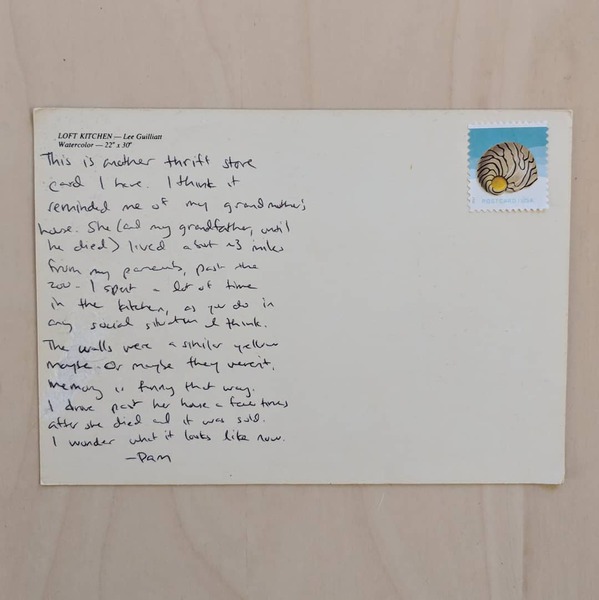 LOFT KITCHEN — Lee Guilliatt
Watercolor — 22" x 30"
This is another thrift store
card I have. I think it
reminded me of my grandmother's
house. She (and my grandfather, until
he died) lived about ~3 miles
from my parents, past the
zoo. I spent a lot of time
in the kitchen, as you do in
any social situation I think.
The walls were a similar yellow
maybe. Or maybe they weren't.
Memory is funny that way.
I drove past her house a few times
after she died and it was sold.
I wonder what it looks like now.
-Pam
POSTCARD USA